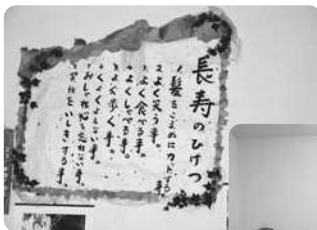 長寿のひけつ
1髪をこまめにカットする手。
2よく笑う手。
3よく食べる手。
4よくしゃべる手。
5よく歩く手。
6くよくよしない手。
7おしゃれ心を忘れない手。
8異性をいしきする手。